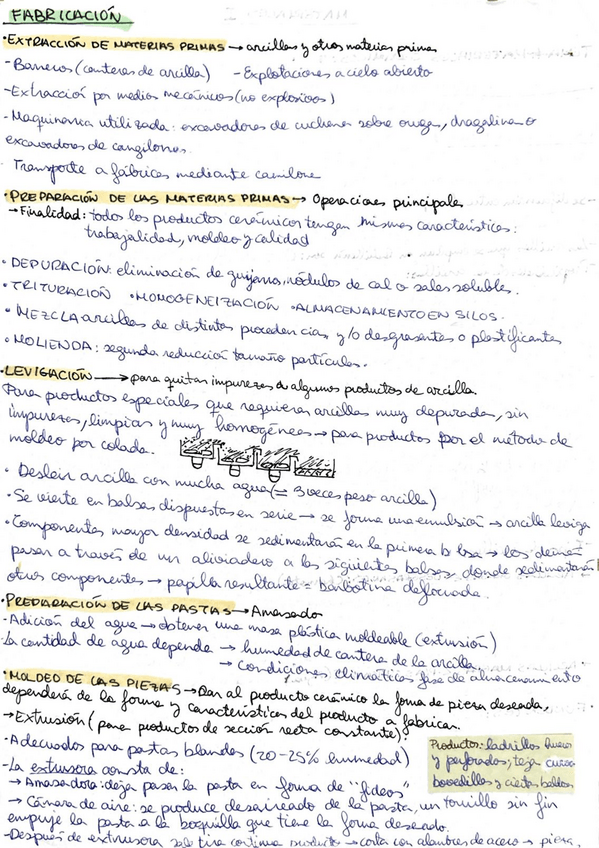 FABRICACIÓN
·EXTRACCIÓN DE MATERIAS PRIMAS → arcillas y otras materias primas
-Barreros (canteras de arcilla) -Explotaciones a cielo abierto
-Extracción por medios mecánicos (no explosivos)
-Maquinaria utilizada: excavadoras de cucharas sobre oruga, dragalinas o
excavadoras de cangilones.
- Transporte a fábricas mediante camiones
·PREPARACIÓN DE LAS MATERIAS PRIMAS → Operaciones principales
→Finalidad: todos los productos cerámicos tengan mismas características:
trabajalidad, moldeo y calidad
· DEPURACIÓN: eliminación de guijarros, nódulos de cal o sales solubles.
·TRITURACIÓN ·HOMOGENEIZACIÓN ·ALMACENAMIENTO EN SILOS.
· MEZCLA arcillas de distintas procedencias y/o desgrasantes o plastificantes
· MOLIENDA: segunda reducción tamaño partículas.
·LEVIGACIÓN → para quitar impurezas de algunos productos de arcilla.
Para productos especiales que requieran arcillas muy depuradas, sin
impurezas, limpias y muy homogéneas → para productos por el método de
moldeo por colada.
· Desleír arcilla con mucha agua (= 3 veces peso arcilla)
·Se vierte en balsas dispuestas en serie → se forma una emulsión → arcilla leviga
·Componentes mayor densidad se sedimentarán en la primera balsa → los demás
pasan a través de un aliviadero a las siguientes balsas, donde sedimentarán
otros componentes → papilla resultante = barbotina defloculada.
·PREPARACIÓN DE LAS PASTAS → Amasado
-Adición del agua → obtener una masa plástica moldeable (extrusión)
-La cantidad de agua depende → humedad de cantera de la arcilla
→ condiciones climáticas fase de almacenamiento
·MOLDEO DE LAS PIEZAS → Dar al producto cerámico la forma de pieza deseada,
dependerá de la forma y características del producto a fabricar.
→Extrusión (para productos de sección recta constante):
-Adecuados para pastas blandas (20-25% humedad)
Productos: ladrillos huecos
y perforados, teja curva
bovedillas y ciertas baldosas
-La extrusora consta de:
→ Amasadora: deja pasar la pasta en forma de "fideos"
→ Cámara de aire: se produce desaireado de la pasta, un tornillo sin fin
empuje la pasta a la boquilla que tiene la forma deseada.
-Después de extrusora sale tira continua producto → corta con alambres de acero → pieza.